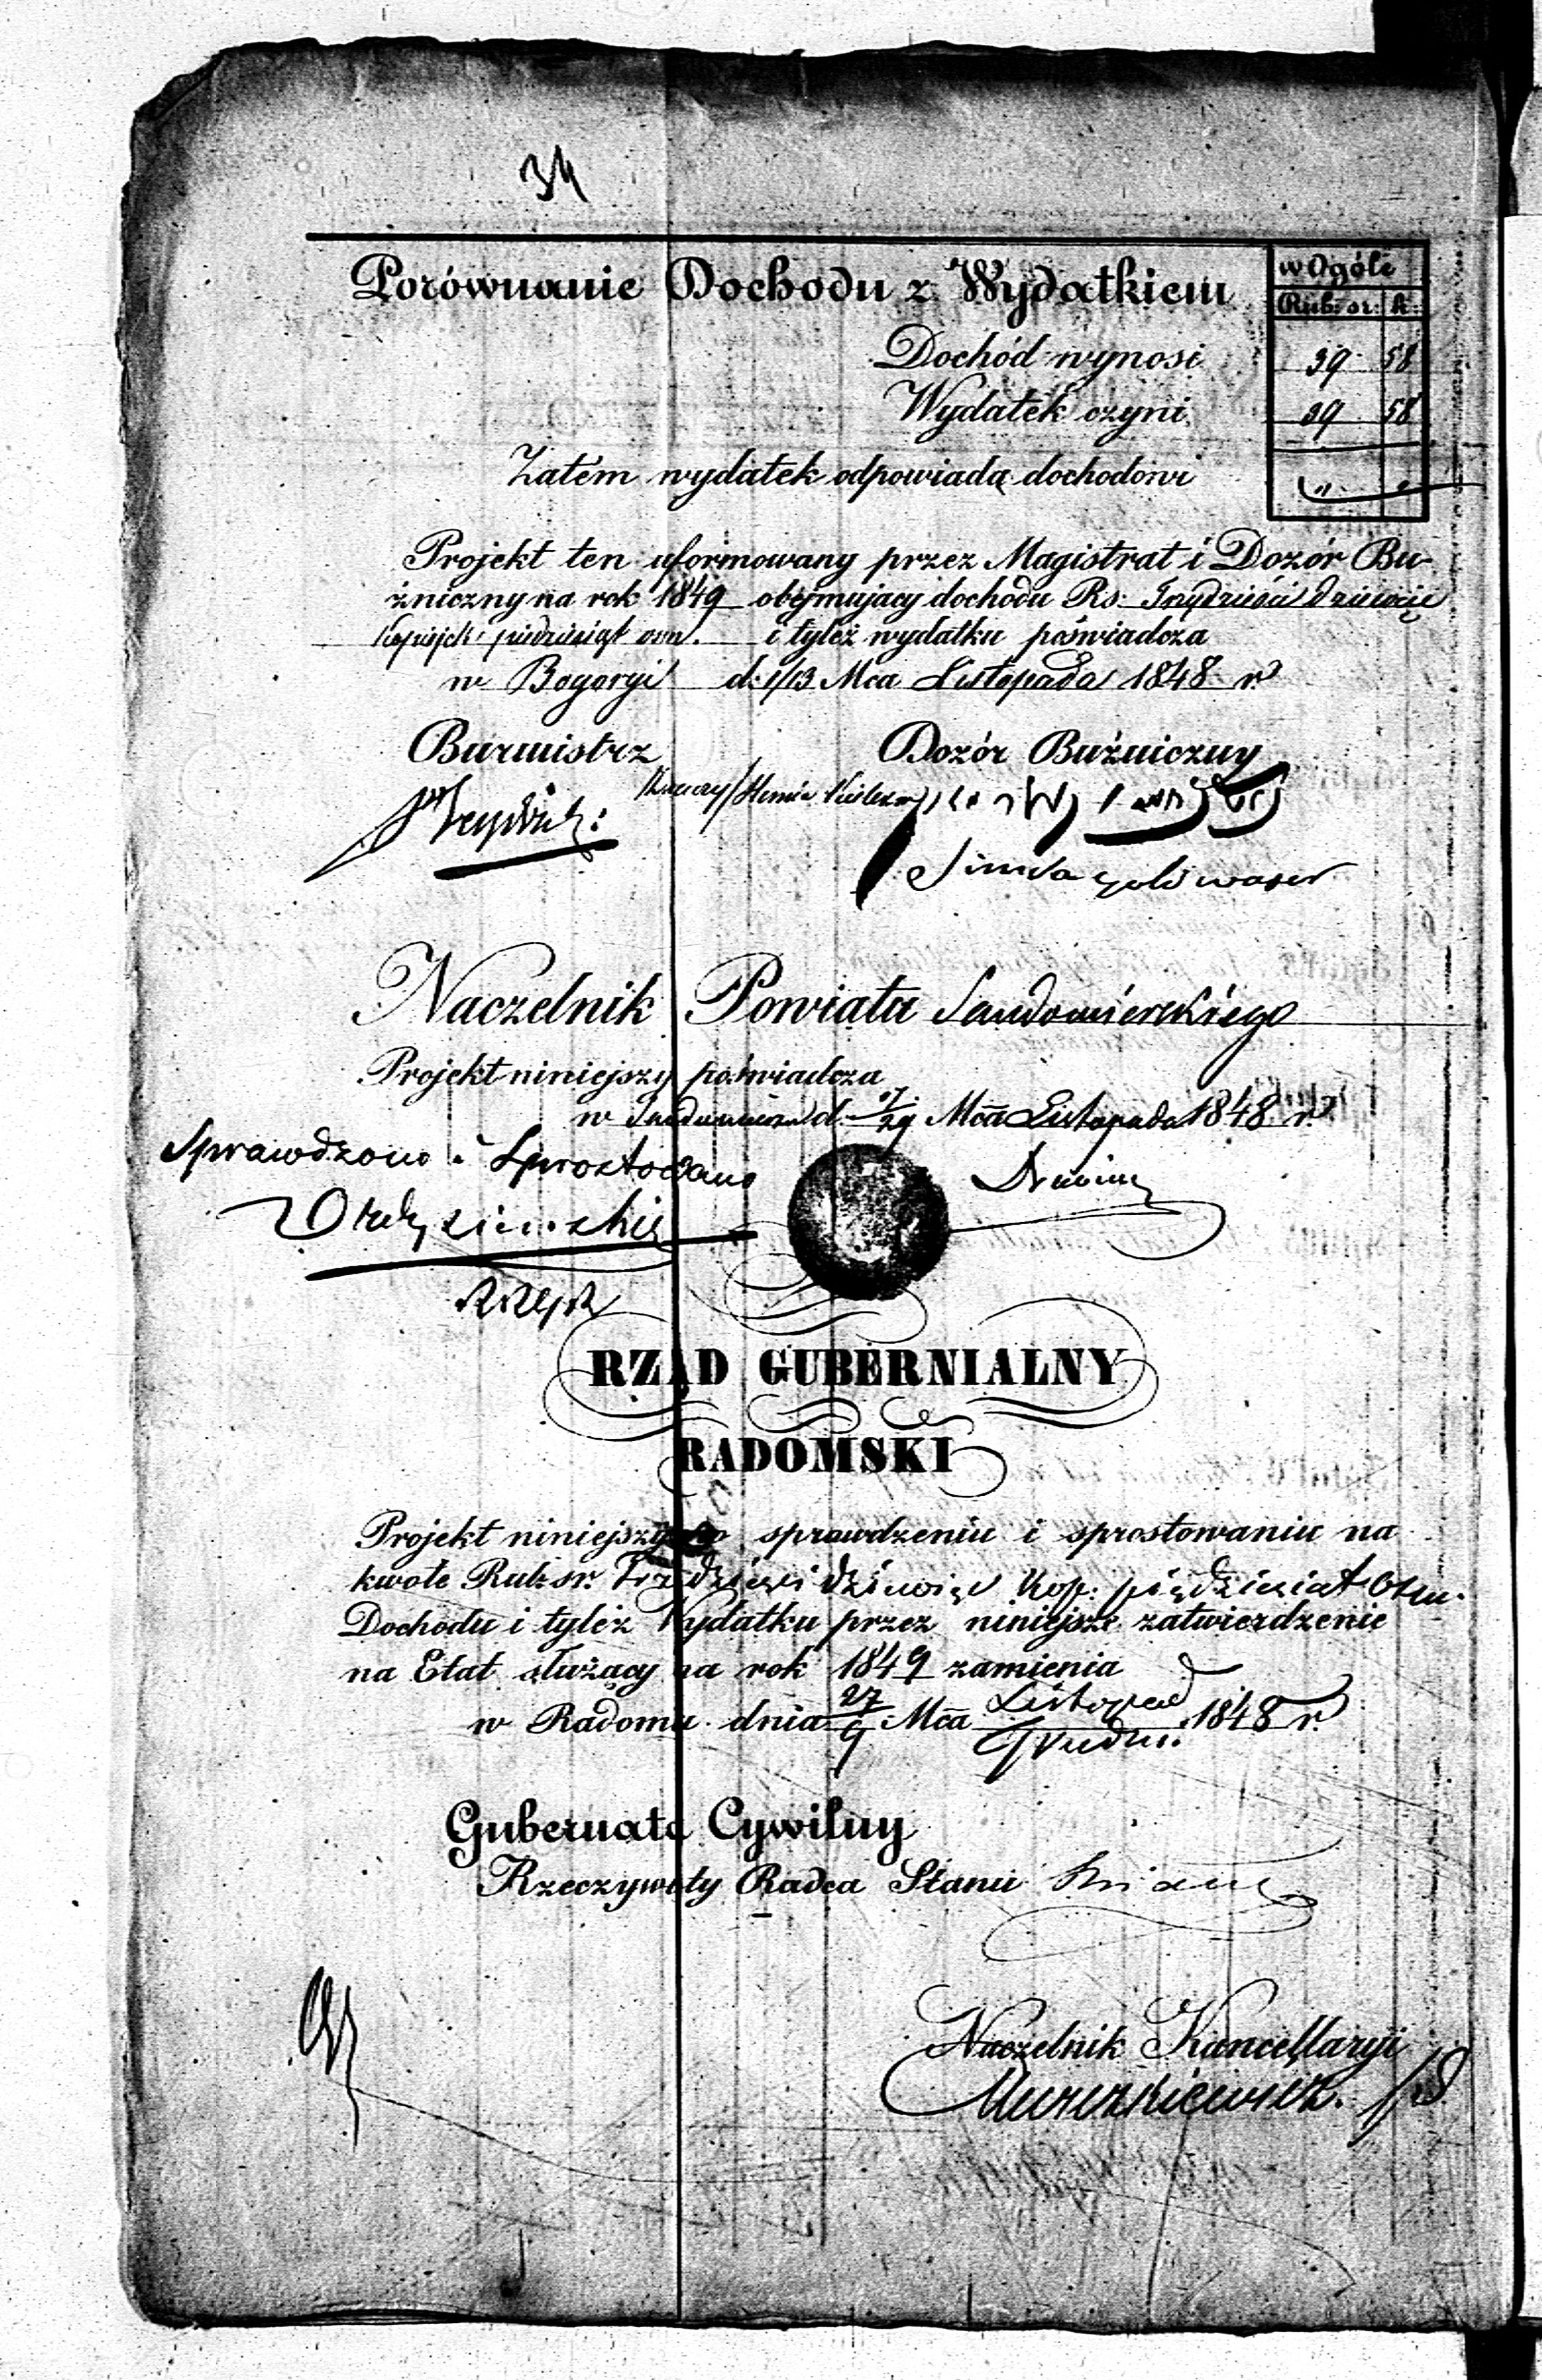 34
Porównanie Dochodu z Wydatkiem
w Ogóle
Rub: sr: k:
Dochód wynosi 39 58
Wydatek czyni 39 58
Zatém wydatek odpowiada dochodowi " "
Projekt ten uformowany przez Magistrat i Dozór Bu-
żniczny na rok 1849 obejmujący dochodu Rs: Trzydzieści dziewięć
Kopiejek pięćdziesiąt osm. i tyleż wydatku poświadcza
w Bogoryi d: 1/13 Mca Listopada 1848 r.
Burmistrz Dozór Bużniczny
Simcha goldwaser
Naczelnik Powiatu Sandomierskiego
Projekt niniejszy poświadcza
w Sandomierzu d. 17/29 Mca Listopada 1848 r.
Sprawdzono i Sprostowano
RZĄD GUBERNIALNY
RADOMSKI
Projekt niniejszy po sprawdzeniu i sprostowaniu na
kwotę Rub. sr. Trzydzieści dziewięć Kop: pięćdziesiąt Osm.
Dochodu i tyleż Wydatku przez niniejsze zatwierdzenie
na Etat służący na rok 1849 zamienia
w Radomiu dnia 27/9 Mca Listopad/Grudni: 1848 r.
Gubernator Cywilny
Rzeczywisty Radca Stanu
Naczelnik Kancellaryi